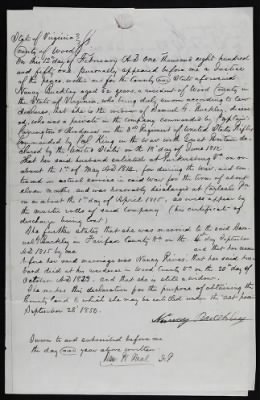 State of Virginia }
County of Wood }
On this 12th day of February A.D. One thousand eight hundred
and fifty one personally appeared before me a Justice
of the peace, within and for the County and State aforesaid
Nancy Buckley aged 52 years, a resident of Wood County in
the State of Virginia, who being duly sworn according to law
declares, that she is the widow of Daniel G. Buckley, deceas-
ed, who was a private in the company commanded by Captain
in the Regiment of United States Rifles
commanded by Col. King in the war with Great Britain de-
clared by the United States on the 18th day of June 1812.
That her said husband enlisted at Parkersburg Va on or
about the 1st of May A.D. 1814, for during the war, and con-
tinued in actual service in said war for the term of about
eleven months, and was honorably discharged at Carlisle Pa
on or about the 1st day of April 1815, as will appear by
the muster rolls of said company (his certificate of
discharge being lost)
She further states that she was married to the said Dan-
iel Buckley in Fairfax County Va on the
A.D. 1815 by and that her name
before her said marriage was Nancy that her said hus-
band died at his residence in Wood County Va on the 20th day of
October A.D. and that she is still a widow.
She makes this declaration for the purpose of obtaining the
Bounty Land to which she may be entitled under the act passed
September 28 1850.
Nancy Buckley
Sworn to and subscribed before me
the day and year above written
J.P.